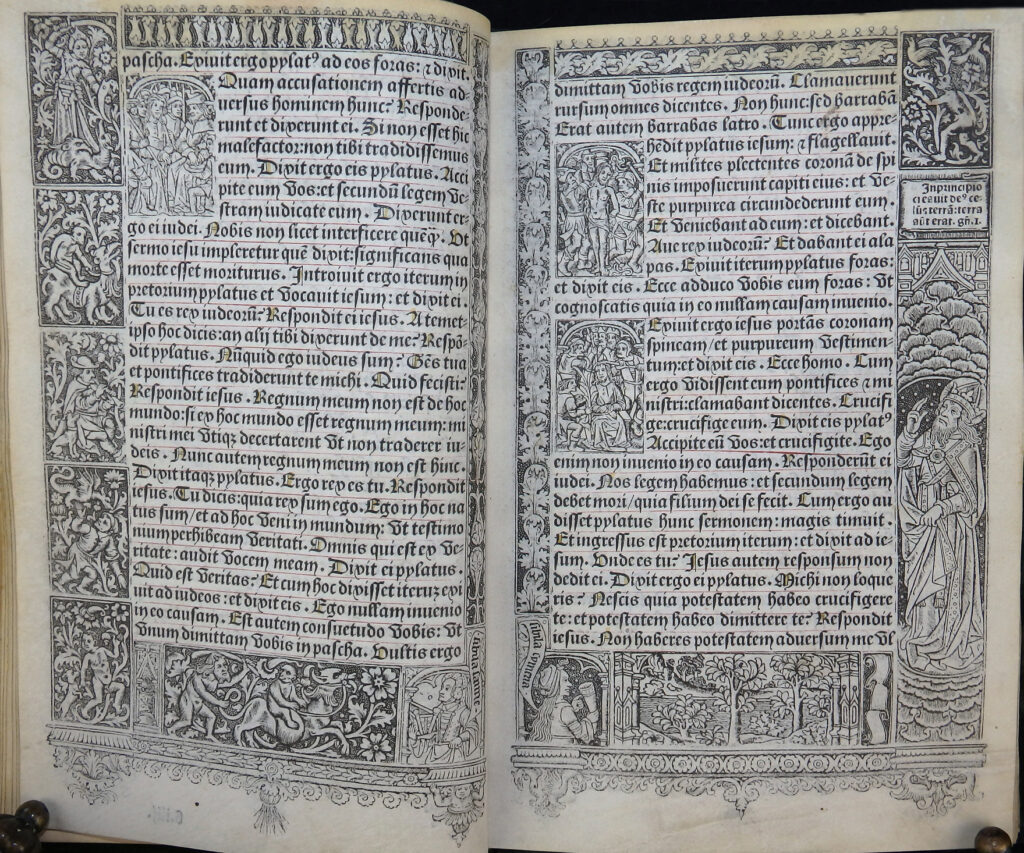 pascha. Exivit ergo pylat⁹ ad eos foras: ⁊ dixit.
Quam accusationem affertis ad-
versus hominem hunc? Responde
runt et dixerunt ei. Si non esset hic
malefactor: non tibi tradidissemus
eum. Dixit ergo eis pylatus. Acci
pite eum vos: et secundū legem ve-
stram iudicate eum. Dixerunt er-
go ei iudei. Nobis non licet interficere quēq̄. Vt
sermo iesu impleretur quē dixit: significans qua
morte esset moriturus. Introivit ergo iterum in
pretorium pylatus et vocavit iesum: et dixit ei.
Tu es rex iudeorū? Respondit ei iesus. A temet-
ipso hoc dicis: an alij tibi dixerunt de me? Respō-
dit pylatus. Nūquid ego iudeus sum? Gēs tua
et pontifices tradiderunt te michi. Quid fecisti?
Respondit iesus. Regnum meum non est de hoc
mundo: si ex hoc mundo esset regnum meum: mi
nistri mei vtiqꝫ decertarent vt non traderer iu-
deis. Nunc autem regnum meum non est hinc.
Dixit itaqꝫ pylatus. Ergo rex es tu. Respondit
iesus. Tu dicis: quia rex sum ego. Ego in hoc na
tus sum/ et ad hoc veni in mundum: vt testimo
nium perhibeam veritati. Omnis qui est ex ve-
ritate: audit vocem meam. Dixit ei pylatus.
Quid est veritas? Et cum hoc dixisset iterū exi
uit ad iudeos: et dixit eis. Ego nullam invenio
in eo causam. Est autem consuetudo vobis: vt
vnum dimittam vobis in pascha. Vultis ergo
dimittam vobis regem iudeorū. Clamaverunt
rursum omnes dicentes. Non hunc: sed barrabā
Erat autem barrabas latro. Tunc ergo appre-
hēdit pylatus iesum: ⁊ flagellauit.
Et milites plectentes coronā de spi
nis imposuerunt capiti eius: et ve-
ste purpurea circundederunt eum.
Et veniebant ad eum: et dicebant.
Ave rex iudeorū? Et dabant ei ala
pas. Exivit iterum pylatus foras:
et dixit eis. Ecce adduco vobis eum foras: vt
cognoscatis quia in eo nullam causam invenio.
Exivit ergo iesus portās coronam
spineam/ et purpureum vestimen-
tum: et dixit eis. Ecce homo. Cum
ergo vidissent eum pontifices ⁊ mi
nistri: clamabant dicentes. Crucifi
ge: crucifige eum. Dixit eis pylat⁹
Accipite eū vos: et crucifigite. Ego
enim non invenio in eo causam. Responderūt ei
iudei. Nos legem habemus: et secundum legem
debet mori/ quia filium dei se fecit. Cum ergo au
disset pylatus hunc sermonem: magis timuit.
Et ingressus est pretorium iterum: et dixit ad ie-
sum. Unde es tu? Jesus autem responsum non
dedit ei. Dixit ergo ei pylatus. Michi non loque
ris? Nescis quia potestatem habeo crucifigere
te: et potestatem habeo dimittere te? Respondit
iesus. Non haberes potestatem adversum me vl
In principio
creavit de⁹ ce
lū ⁊ terrā: terra
aūt erat. gn̄. 1.